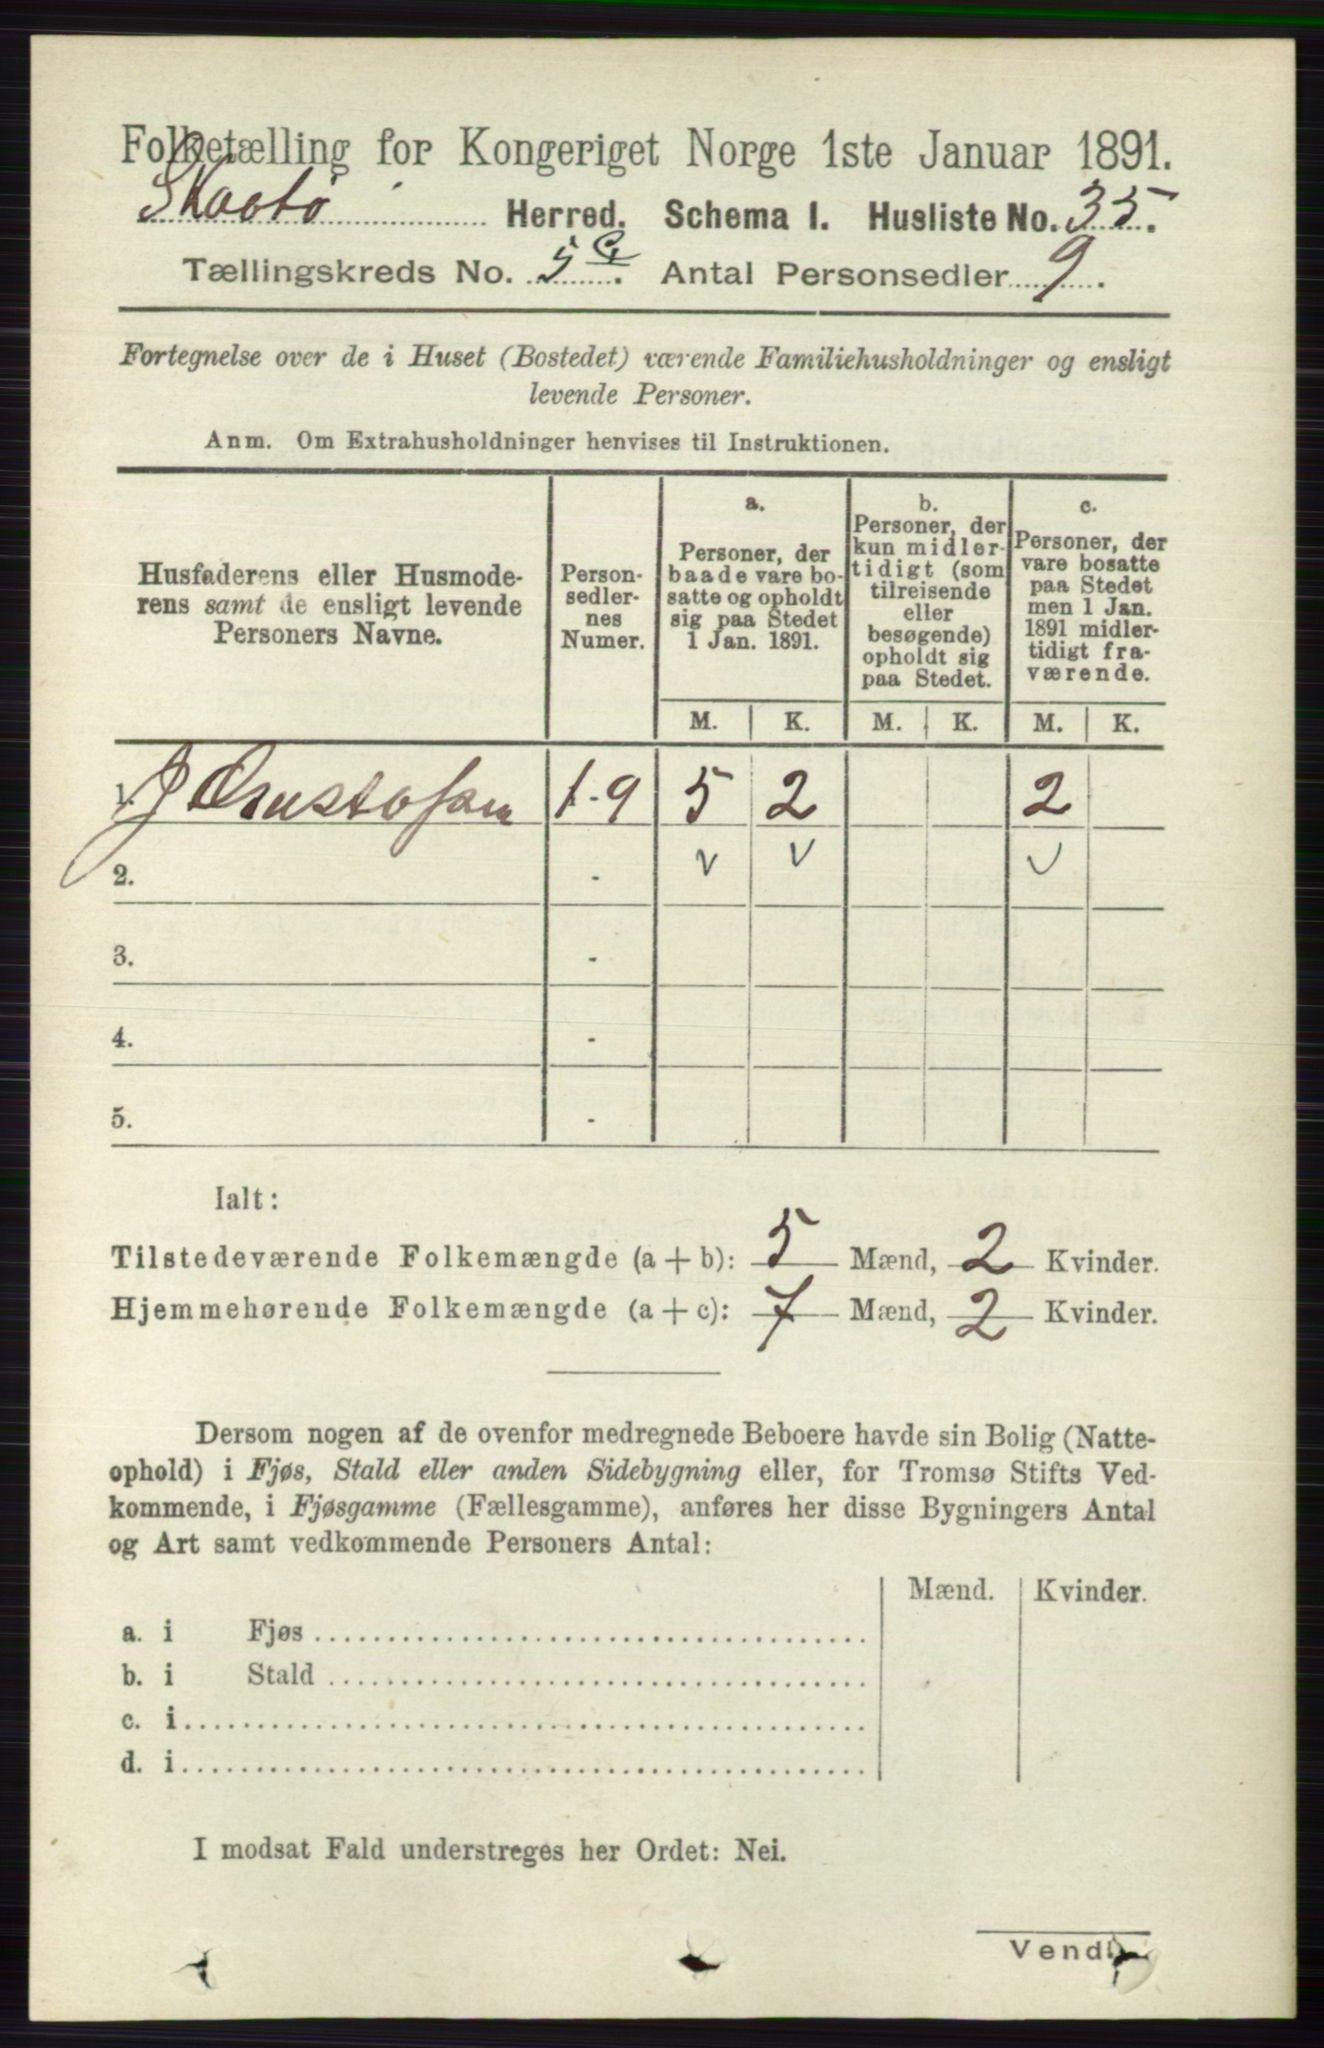 Folketælling for Kongeriget Norge 1ste Januar 1891.
Skaatø Herred. Schema I. Husliste No. 35.
Tællingskreds No. 5 Antal Personsedler 9.
Fortegnelse over de i Huset (Bostedet) værende Familiehusholdninger og ensligt
levende Personer.
Anm. Om Extrahusholdninger henvises til Instruktionen.
Husfaderens eller Husmode-
rens samt de ensligt levende
Personers Navne.
Person-
sedler-
nes
Numer.
a.
Personer, der
baade vare bo-
satte og opholdt
sig paa Stedet
1 Jan. 1891.
b.
Personer, der
kun midler-
tidigt (som
tilreisende
eller
besøgende)
opholdt sig
paa Stedet.
c.
Personer, der
vare bosatte
paa Stedet
men 1 Jan.
1891 midler-
tidigt fra-
værende.
M. K. M. K. M. K.
1. J 1-9 5 2 2
2. - v v v
3. -
4. -
5. -
Ialt:
Tilstedeværende Folkemængde (a + b): 5 Mænd, 2 Kvinder.
Hjemmehørende Folkemængde (a + c): 7 Mænd, 2 Kvinder.
Dersom nogen af de ovenfor medregnede Beboere havde sin Bolig (Natte-
ophold) i Fjøs, Stald eller anden Sidebygning eller, for Tromsø Stifts Ved-
kommende, i Fjøsgamme (Fællesgamme), anføres her disse Bygningers Antal
og Art samt vedkommende Personers Antal:
Mænd. Kvinder.
a. i Fjøs
b. i Stald
c. i
d. i
I modsat Fald understreges her Ordet: Nei.